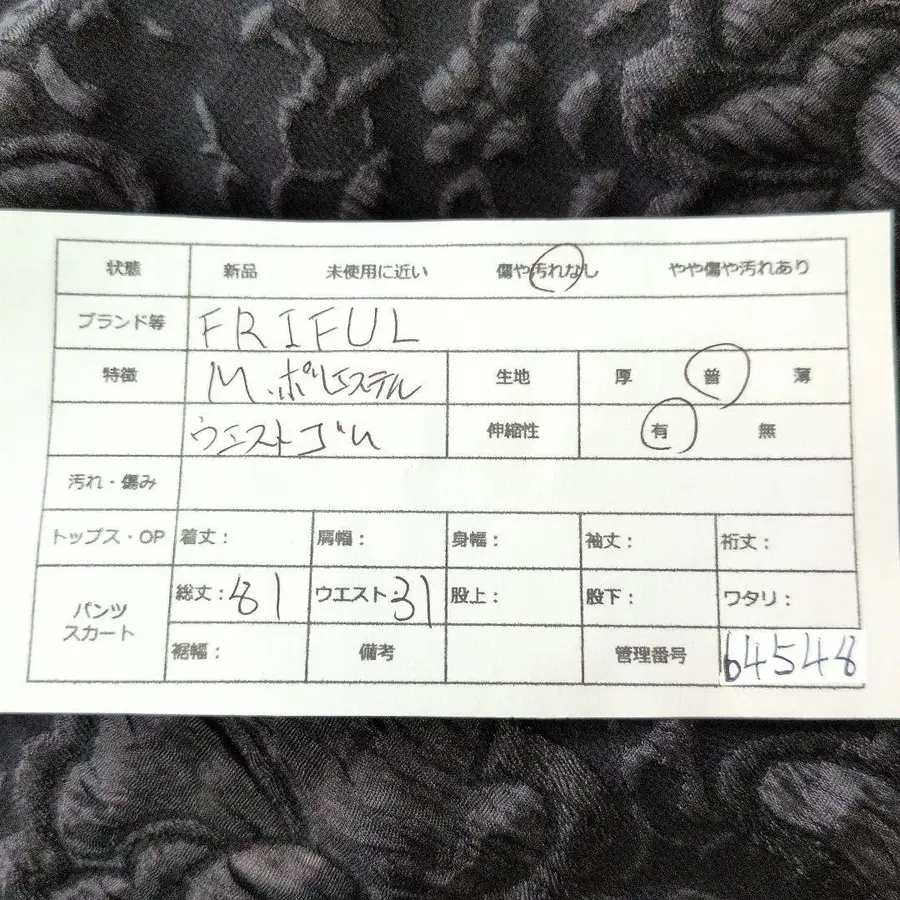 状態 新品 未使用に近い 傷や汚れなし やや傷や汚れあり
ブランド等 FRIFUL
特徴 M.ポリエステル 生地 厚 普 薄
ウエストゴム 伸縮性 有 無
汚れ・傷み
トップス・OP 着丈： 肩幅： 身幅： 袖丈： 裄丈：
パンツ
スカート
総丈：81 ウエスト：31 股上： 股下： ワタリ：
裾幅： 備考 管理番号 64548